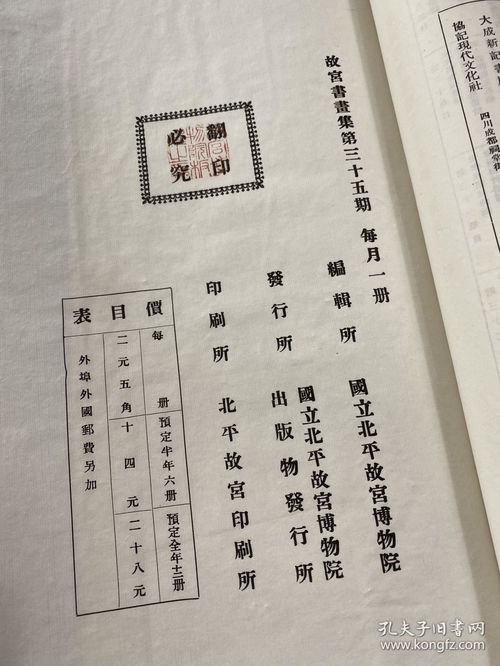 大成新記書局
四川成都祠堂街
協記現代文化社
故宮書畫集第三十五期 每月一册
編輯所 國立北平故宮博物院
發行所 國立北平故宮博物院
出版物發行所
印刷所 北平故宮印刷所
翻印
必究
價目表
每册 二元五角
預定半年六册 十四元
預定全年十二册 二十八元
外埠外國郵費另加
孔夫子旧书网
www.kongfz.com